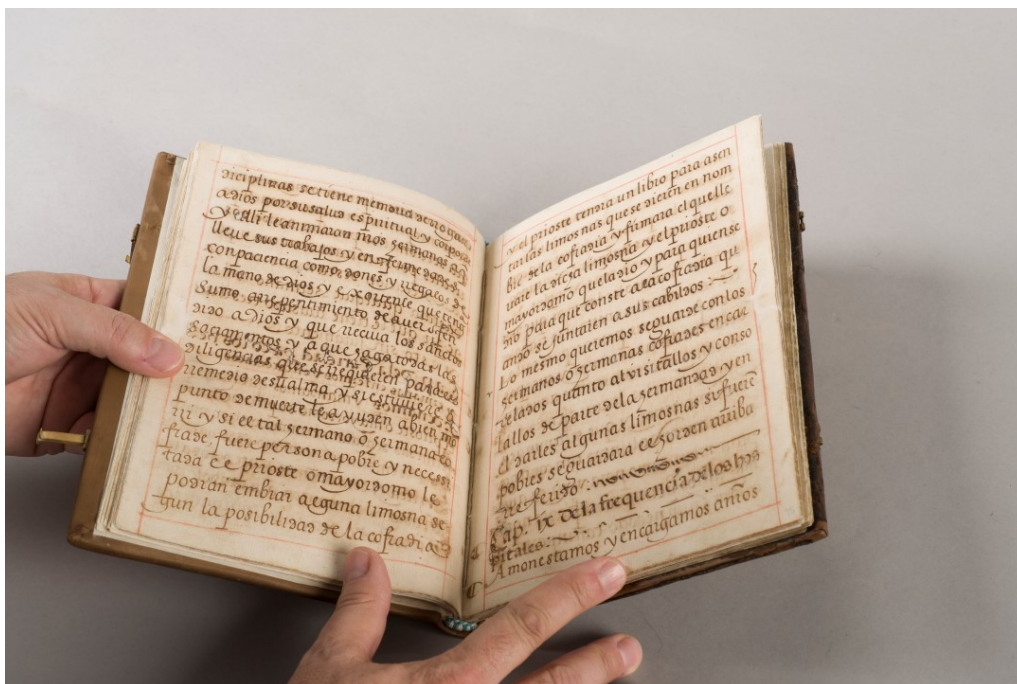 diciplinas se tiene memoria de rrogar
a dios por su salud espiritual y corporal
y alli le animaran mos hermanos a q
lleve sus trabajos y enfermedades
con paciencia como dones y regalos de
la mano de dios y e xorirle que tene
sumo arrepentimiento de aver ofen
dido a dios y que rreciva los sanctos
sacramentos y a que se haga todas las
diligencias que se rrequieren para el
rremedio de su alma y si estuviere a
punto de muerte le ayuden a bien mo
rir y si el tal hermano o hermana co
frade, fuere persona pobre y necessi
tada el prioste o mayordomo le
podran embiar alguna limosna se
gun la posibilidad de la cofradia
y el prioste tendra un libro para asen
tar las limosnas que se dieren en nom
bre de la cofradia y firmara el que lle
vare la dicha limosna y el prioste o
mayordomo que la dio y para quien se
dio para que conste a la cofradia qu
ando se juntaren a sus cabildos:
Lo mesmo queremos se guarde con los
hermanos o hermanas cofrades encar
celados quanto al visitallos y conso
lallos de parte de la hermandad y en
el darles algunas limosnas si fuere
pobres se guardara el horden arriba
rreferido:
Cap. ix de la frequencia de los hos
pitales:
Amonestamos y encargamos a nros